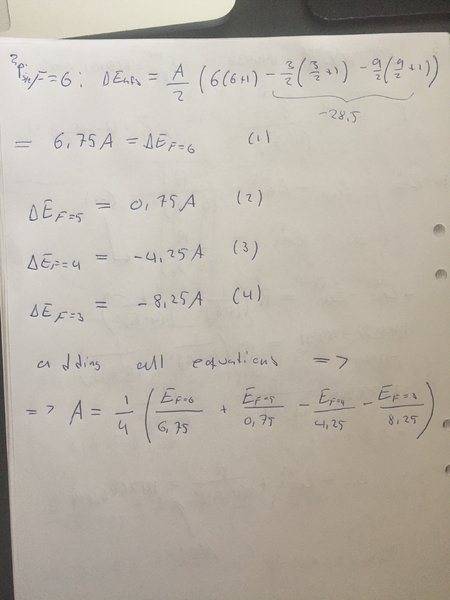 ²P₃/₂ F=6: ΔE_HFS = A/2 (6(6+1) - 3/2(3/2+1) - 9/2(9/2+1))
-28,5
= 6,75A = ΔE_F=6 (1)
ΔE_F=5 = 0,75A (2)
ΔE_F=4 = -4,25A (3)
ΔE_F=3 = -8,25A (4)
adding all equations =>
=> A = 1/4 (E_F=6/6,75 + E_F=5/0,75 - E_F=4/4,25 - E_F=3/8,25)